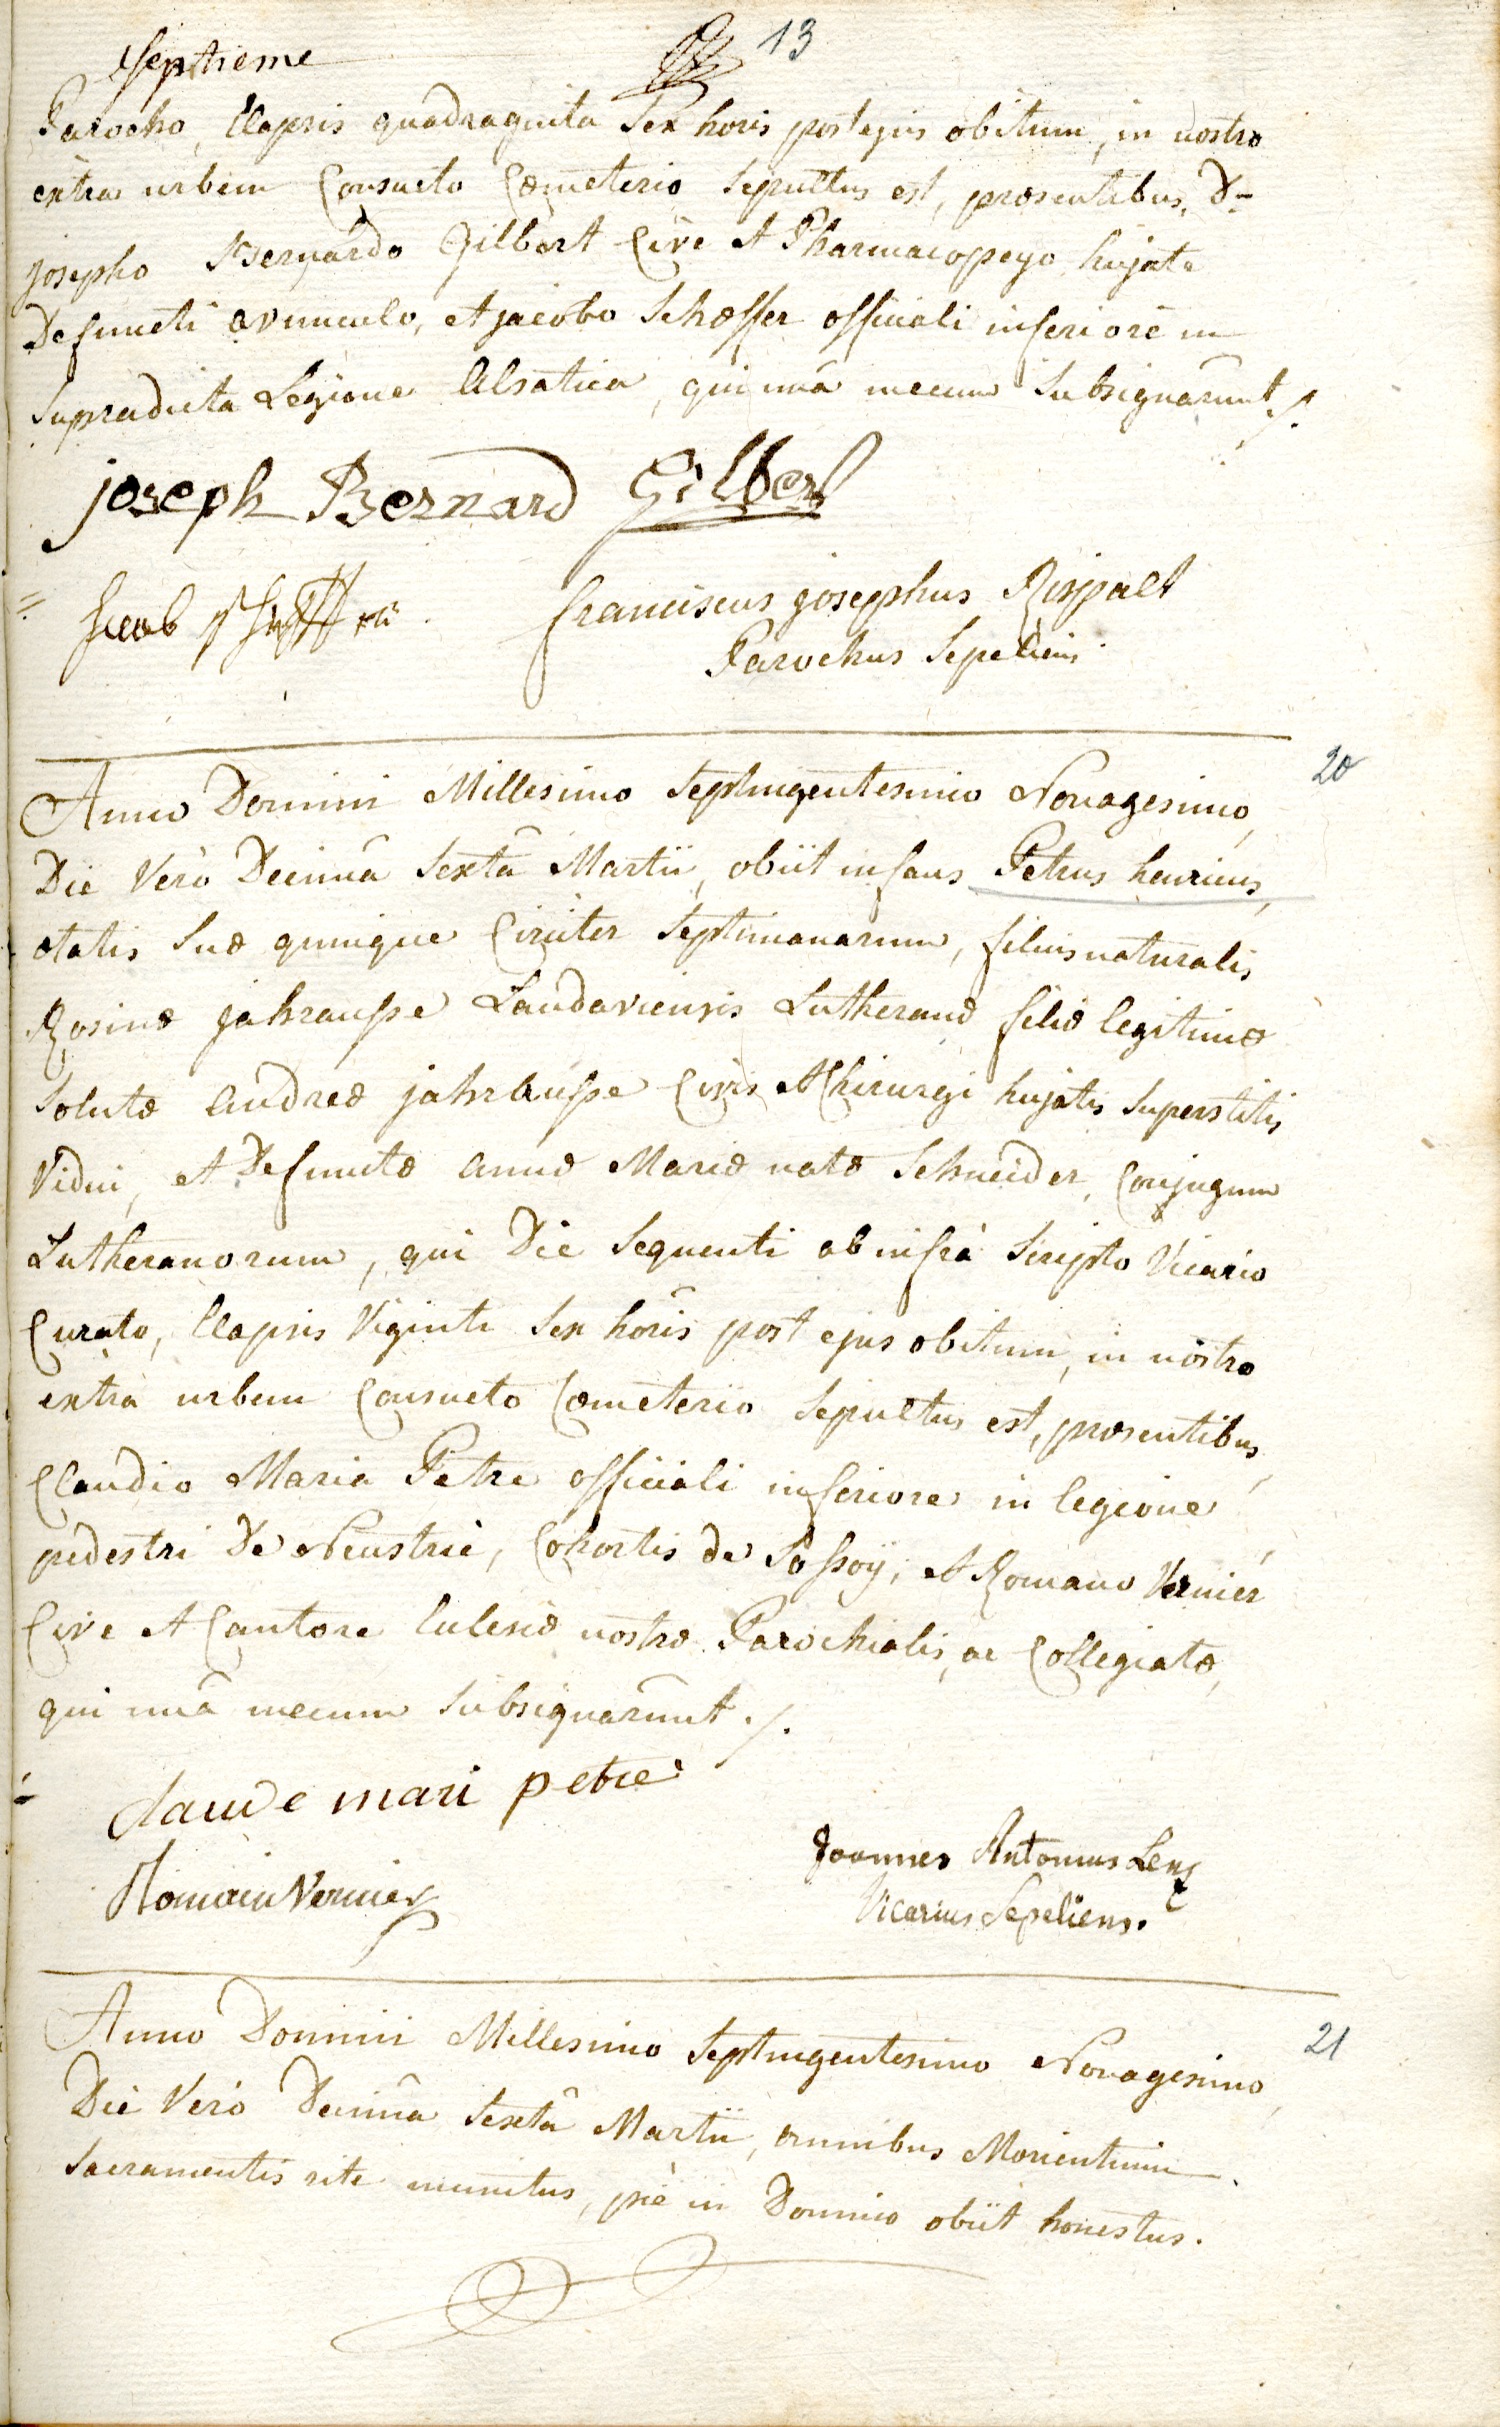 Septieme
13
Parocho, Elapsis quadraginta Sex horis post ejus obitum, in nostro
extra urbem Consueto Cœmeterio Sepultus est, præsentibus, D-
josepho Bernardo Gilbert Cive et Pharmacopeyo hujate
Defuncti avunculo, et jacobo Schæffer officiali inferiore in
Supradicta Legione Alsatica, qui unâ mecum Subsignarunt ./.
joseph Bernard Gilbert
Jacob
franciscus josephus Rispalt
Parochus Sepeliens.
20
Anno Domini Millesimo Septingentesimo Nonagesimo,
Die Verò Decimâ Sextâ Martii, obiit infans Petrus henricus,
ætatis Suæ quinque Circiter Septimanarum, filius naturalis
Rosinæ jahrausse Landaviensis Lutheranæ filiæ legitimæ
Solutæ Andreæ jahrausse Civis et Chirurgi hujatis Superstitis
Vidui, et Defunctæ annæ Mariæ natæ Schneider, Conjugum
Lutheranorum, qui Die Sequenti ab infrà Scripto Vicario
Curato, Elapsis Viginti Sex horis post ejus obitum, in nostro
extrà urbem Consueto Cœmeterio Sepultus est, præsentibus,
Claudio Maria Petre officiali inferiore in legione
pedestri De Neustrie, Cohortis de Sossoÿ, et Romano Vernier
Cive et Cantore Eclesiæ nostræ Parochialis, ac Collegiatæ,
qui unâ mecum Subsignarunt ./.
claude mari petre
Romain Vernier
Joannes Antonius Lenz
Vicarius Sepeliens.
21
Anno Domini Millesimo Septingentesimo Nonagesimo,
Die Verò Decimâ Sextâ Martii, omnibus Morientium
Sacramentis rite munitus, piè in Domino obiit honestus.